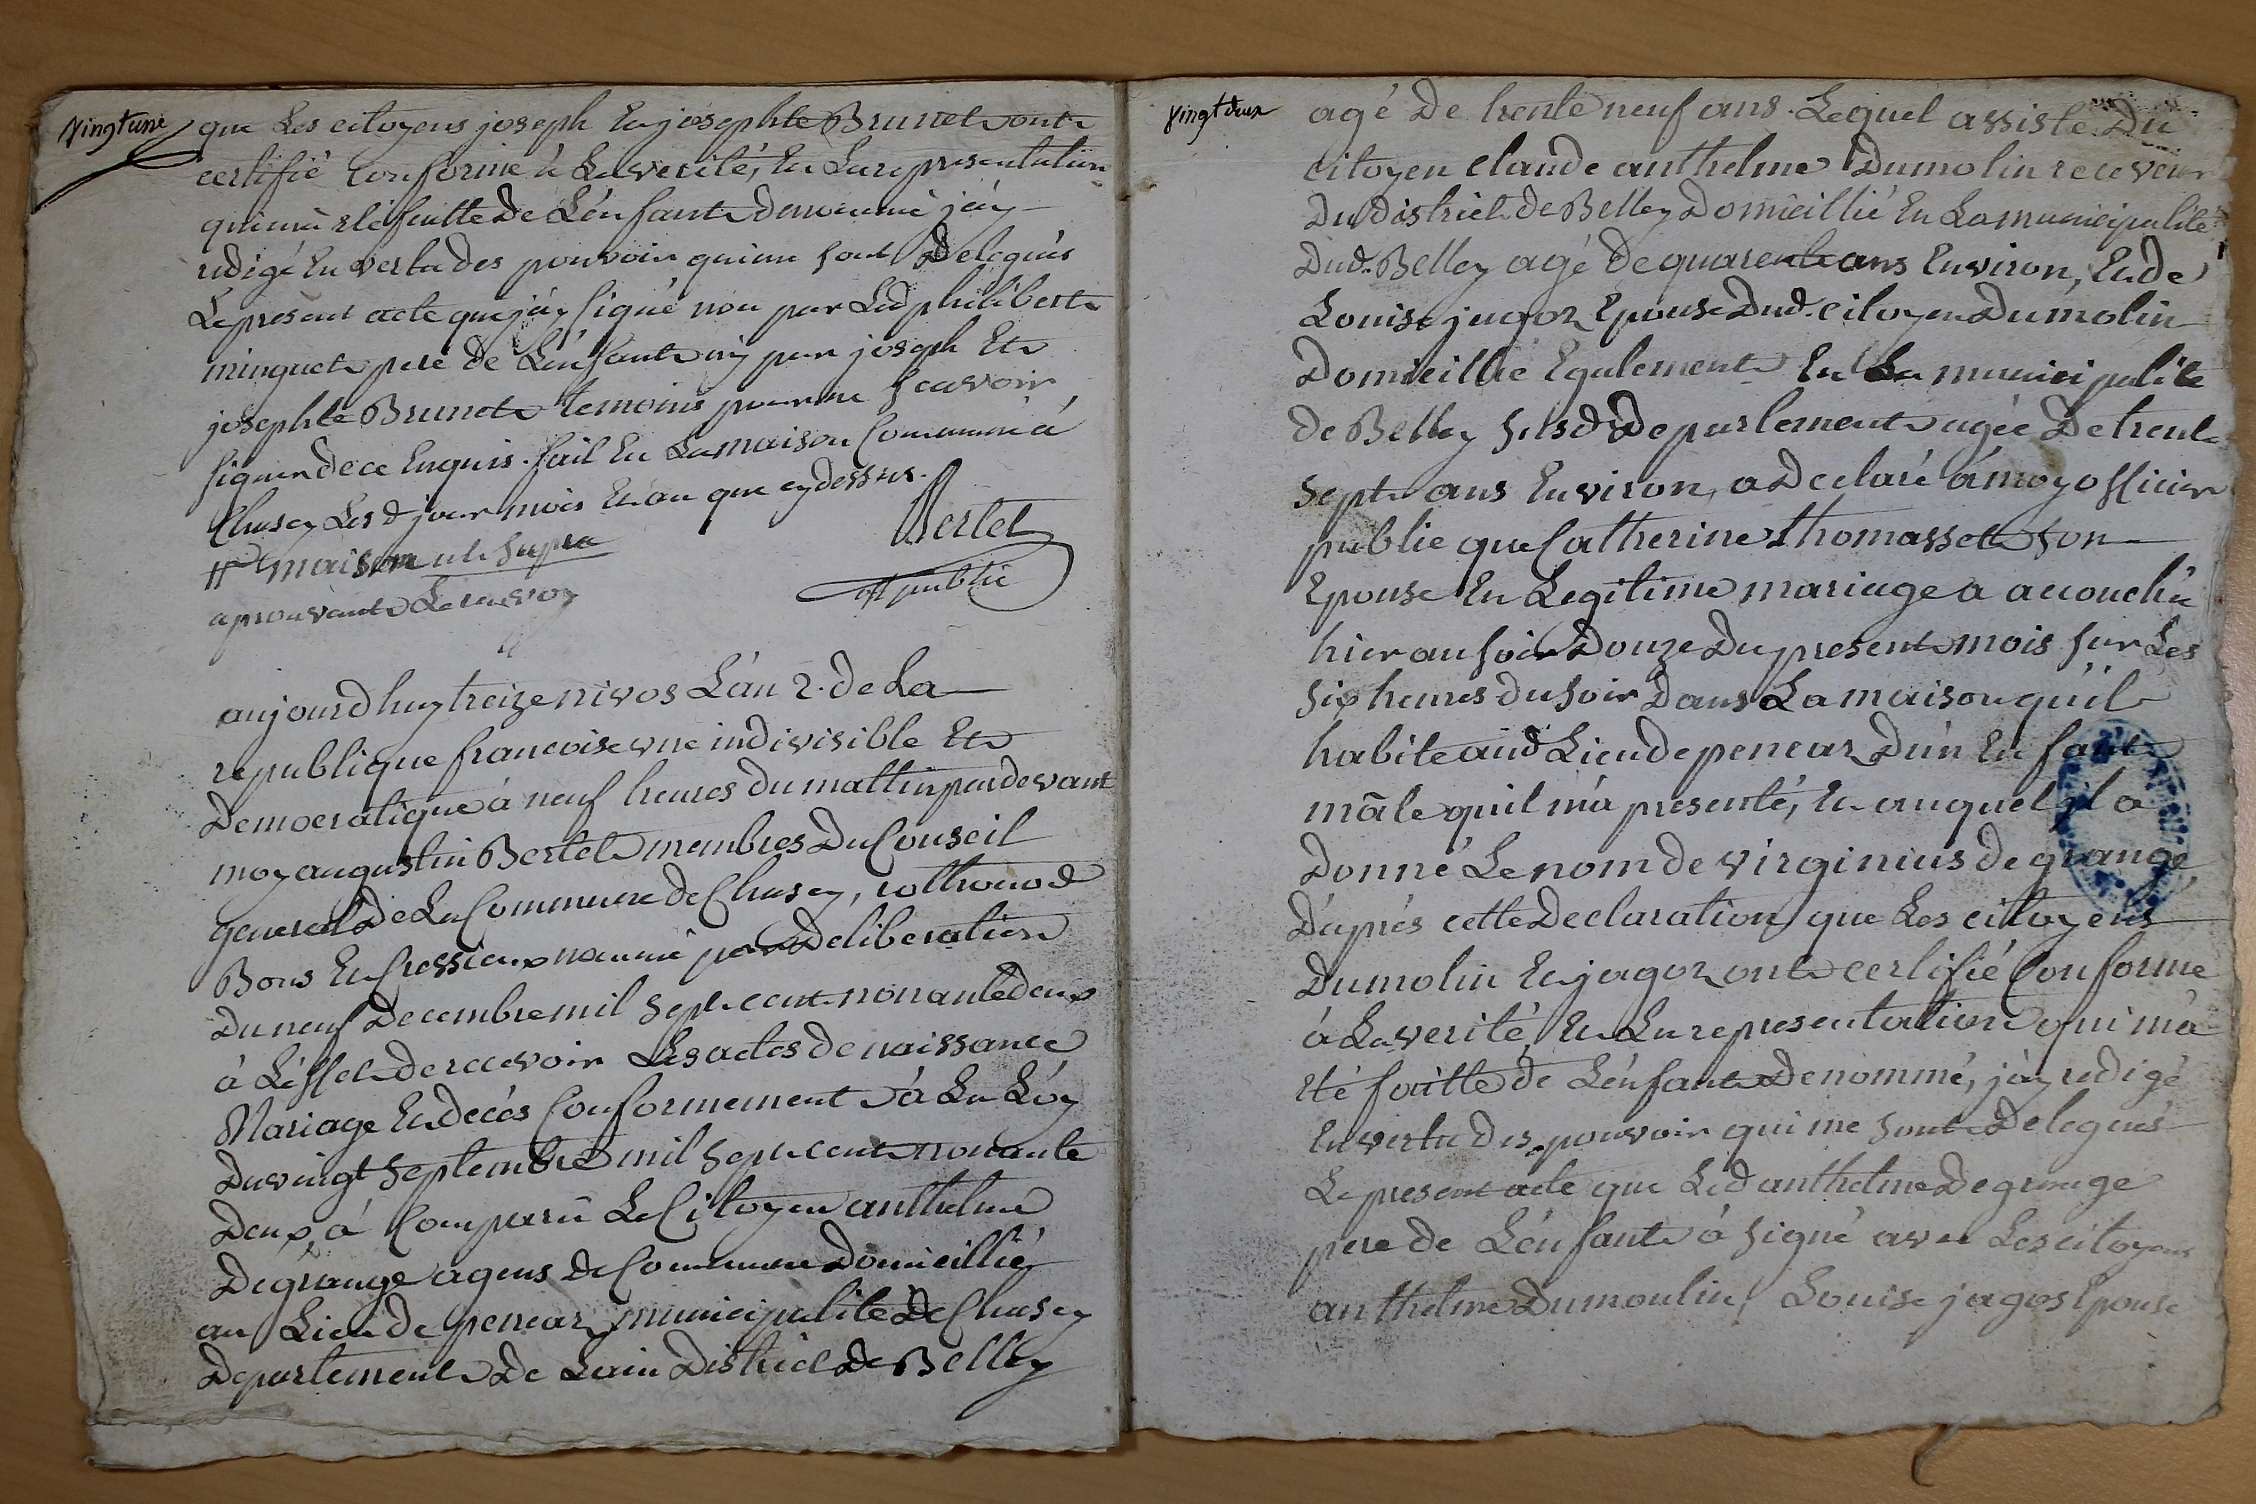 vingtune
que Les citoyens joseph Et josephte Brunet ont
certifié Conforme à La verité, Et La representation
qui m'a eté faitte de L'enfant denommé j'ay
redigé En vertu des pouvoir qui me sont Delegués
Le present acte que j'ay signé non par Led philibert
minguet pere de L'enfant ny par joseph Et
josephte Brunet temoins pour ne scavoir
signer de ce Enquis. fait En La maison Commune à
Chusey Les d jour mois Et an que cy dessus.
maison ut supra
aprouvant Le renvoy
Bertet
off public
aujourdhuy treize nivos L'an 2. de La
republique francoise une indivisible Et
Democratique à neuf heures du mattin pardevant
moy augustin Bertet membres Du Conseil
general De La Commune de Chusey, rothonod
Bons Et Cressieux nommé par Deliberation
Du neuf Decembre mil sept cent nonante deux
à L'effet de recevoir Les actes de naissance
Mariage Et decés Conformement à La Loy
Du vingt septembre mil sept cent nonante
Deux, à Comparu Le Citoyen anthelme
Degrange agens de Commune Domicillié
au Lieu de penear municipalité De Chusey
Departement De Lain District De Belley
vingt deux
agé De trente neuf ans. Lequel assisté Du
citoyen claude anthelme Dumolin receveur
Du district de Belley Domicillié En La municipalité
Dud. Belley agé de quarente ans Environ, Et de
Louise jagoz Epouse Dud. citoyen Dumolin
Domicillié Egalement En La municipalité
de Belley susd Departement agée De trente
sept ans Environ, a Declaré à moy officier
public que Catherine thomasset son
Epouse En Legitime mariage a accouché
hier au soir Douze Du present mois sur Les
six heures du soir Dans La maison qu'il
habite aud Lieu de penear D'un Enfant
mâle qu'il m'a presenté, Et auquel il a
Donné Le nom de virginius de grange,
D'aprés cette Declaration que Les citoyens
Dumolin Et jagoz ont certifié Conforme
à La verité, Et La representation qui m'a
eté faitte de L'enfant Denommé, j'ay redigé
En vertu Des pouvoir qui me sont Delegués
Le present acte que Led anthelme Degrange
pere de L'enfant à signé avec Les citoyens
anthelme Dumoulin, Louise jagos Epouse